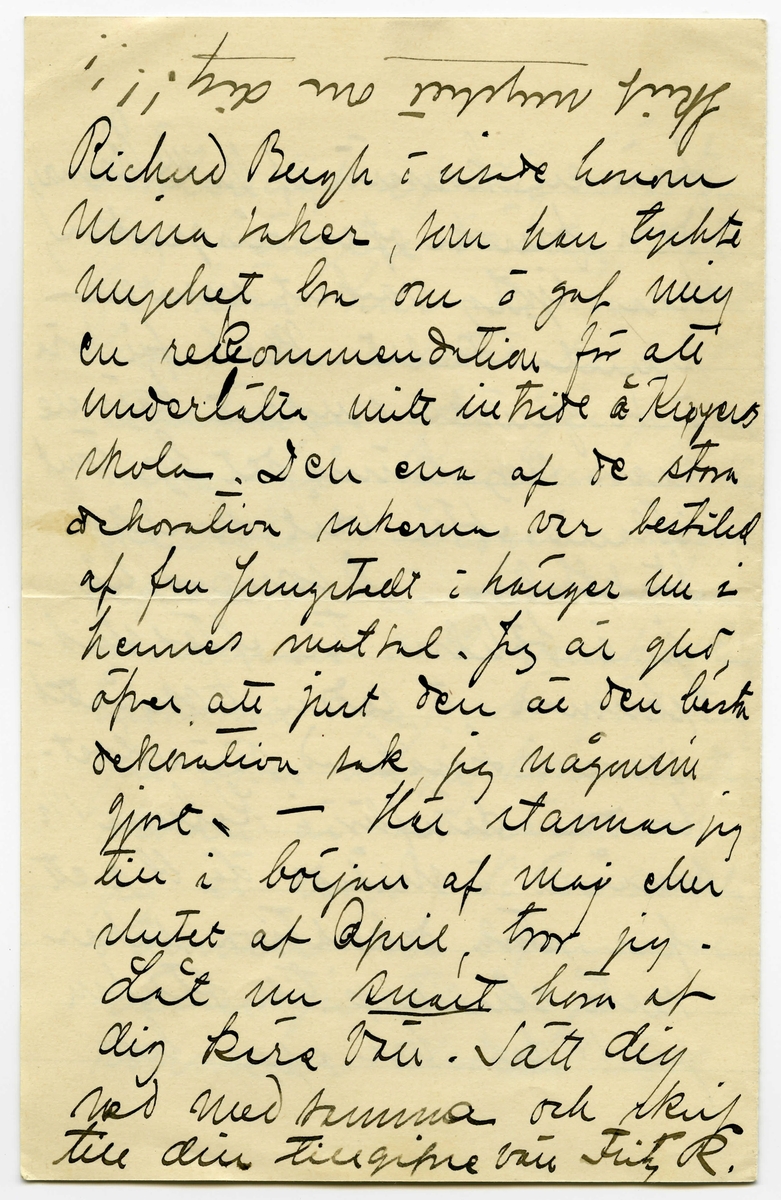 Skrif mycket om dig!!!!
Richard Bergh o visade honom
mina saker, som han tyckte
mycket bra om o gaf mig
en rekommendation för att
underlätta mitt inträde å Krøyers
skola. Den ena af de stora
dekorativa sakerna var bestäld
af fru Ljungstedt i hänger nu i
hennes matsal. Jag är glad,
öfver att just den är den bästa
dekorativa sak, jag någonsin
gjort. — Här stannar jag
till i början af maj eller
slutet af April, tror jag.
Låt nu snart höra af
dig käre vän. Sätt dig
ned med samma och skrif
till din tillgifne vän Fritz R.